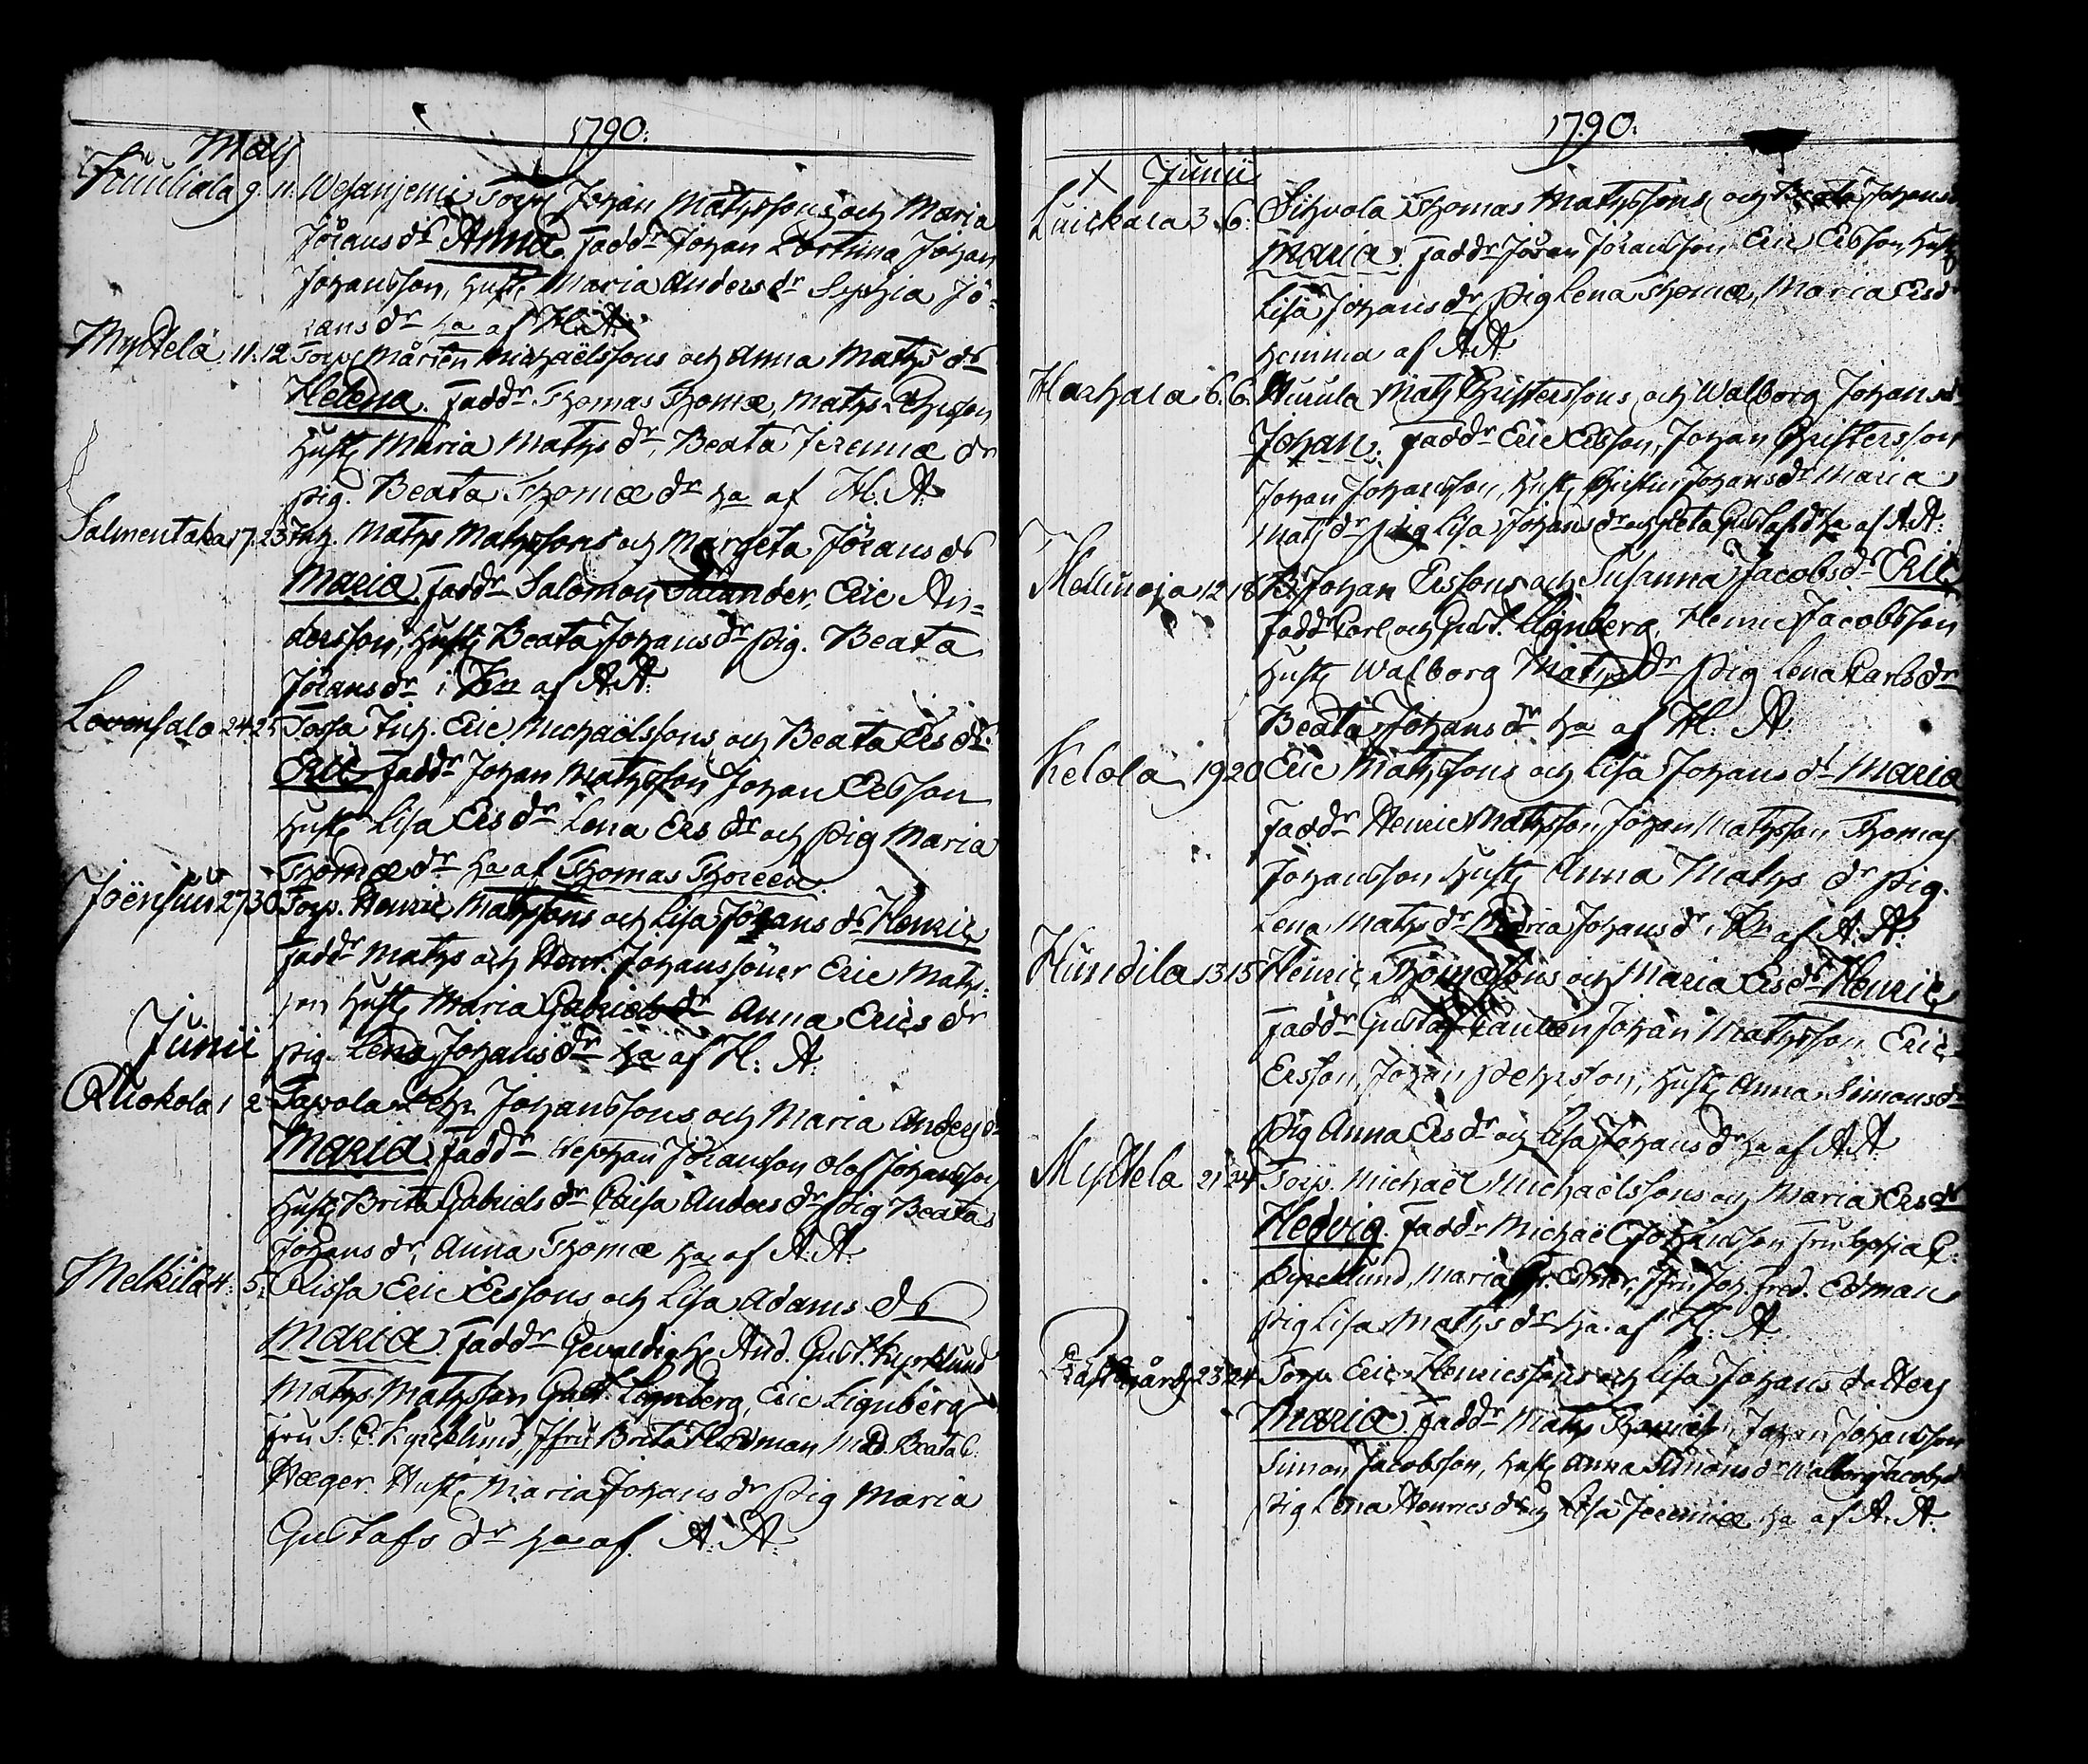 1790.
Maij
Kiuuliala 9. 11. Wesanjemi Torp. Johan Mathssons och Maria
Jöransdr Anna. Faddr Johan Fortuna Johan
Johansson, Hust. Maria Andersdr Sophia Jö-
ransdr ha af H. A.
Myttelä 11. 12 Torp. Mårten Michaëlssons och Anna Mathsdr
Helena. Faddr Thomas Thomæ, Maths Pehrsson
Hust. Maria Mathsdr, Beata Jeremiæ dr
pig. Beata Thomæ dr ha af H. A.
Salmentaka 17. 23 Inh. Maths Mathssons och Margeta Jöransdr
Maria. Faddr Salomon Salander, Eric An-
dersson, Hust. Beata Johansdr pig. Beata
Jöransdr i af A. A.
Lovensalo 24. 25 Tossa Inh. Eric Michaëlssons och Beata Ersdr
Eric Faddr Johan Mathsson Johan Ersson
Hust. Lisa Ersdr Lena Ersdr och pig Maria
Thomædr ha af Thomas Thoreen.
Joënsuu 27 30 Torp. Henric Mathssons och Lisa Johansdr Henric
Faddr Maths och Henr. Johanssöner Eric Maths-
son Hust. Maria Gabrielsdr Anna Erics dr
pig. Lena Johansdr ha af H: A.
Junii
Ruokola 1 2 Tapola Pehr Johanssons och Maria Andersdr
Maria. Faddr Stephan Jöransson Olof Johansson
Hust. Brita Gabrielsdr Caisa Andersdr pig Beata
Johansdr, Anna Thomæ ha af A. A.
Melkilä 4. 5. Rissa Eric Erssons och Lisa Adams dr
Maria. Faddr And. Gust. Kyrklund
Maths Mathsson Gust. Lignberg, Eric Lignberg
Fru S. C. Kyrklund Jfru Brita H. Edman, Mad. Beata C.
Hæger. Hust. Maria Johansdr pig Maria
Gustafs dr ha af A. A.
1790.
X Junii
Luickala 3. 6. Sihvola Thomas Mathssons och Beata Johansdr
Maria. Faddr Jöran Jöransson Eric Ersson, Hust.
Lisa Johansdr, pig Lena Thomæ, Maria Ersdr
hemma af A. A.
Harhala 6. 6. Huuula Maths Christerssons och Walborg Johansdr
Johan: Faddr Eric Ersson, Johan Christersson
Johan Johansson, Hust. Christin Johansdr Maria
Matsdr pig Lisa Johansdr och Greta Gustafsdr ha af A. A.
Mellinoja 12 18 B. Johan Erssons och Susanna Jacobsdr Eric
Faddr Carl och Gust. Lignberg, Henric Jacobsson
Hust. Walborg Mathsdr pig Lena Carlsdr
Beata Johansdr ha af H. A.
Ketola 19 20 Eric Mathssons och Lisa Johans dr Maria
Faddr Henric Mathsson Johan Mathsson Thomas
Johansson Hust. Anna Maths dr pig.
Lena Mathsdr Maria Johansdr i af A. A.
Hundila 13 15 Henric Thomæsons och Maria Ersdr Henric
Faddr Gustaf Johan Mathsson Eric
Ersson, Johan Pehrsson, Hust. Anna Simonsdr
pig Anna Ersdr och Lisa Johansdr ha af A. A.
Myttelä 21 24 Torp. Michaël Michaëlssons och Maria Ersdr
Hedvig. Faddr Michaël Johansson Fru Sophia C.
Kyrcklund, Maria Jfru Joh. Fred. Edman
pig Lisa Mathsdr ha. af H. A.
Prästegårds 23 24 Torp. Eric Henricssons och Lisa Johans dotters
Maria. Faddr Maths Johan Johansson
Simon Jacobsson, Hust. Anna Simonsdr Walborg Jacobsdr
pig Lena Henricsdr och Lisa Jeremiæ ha af A. A.